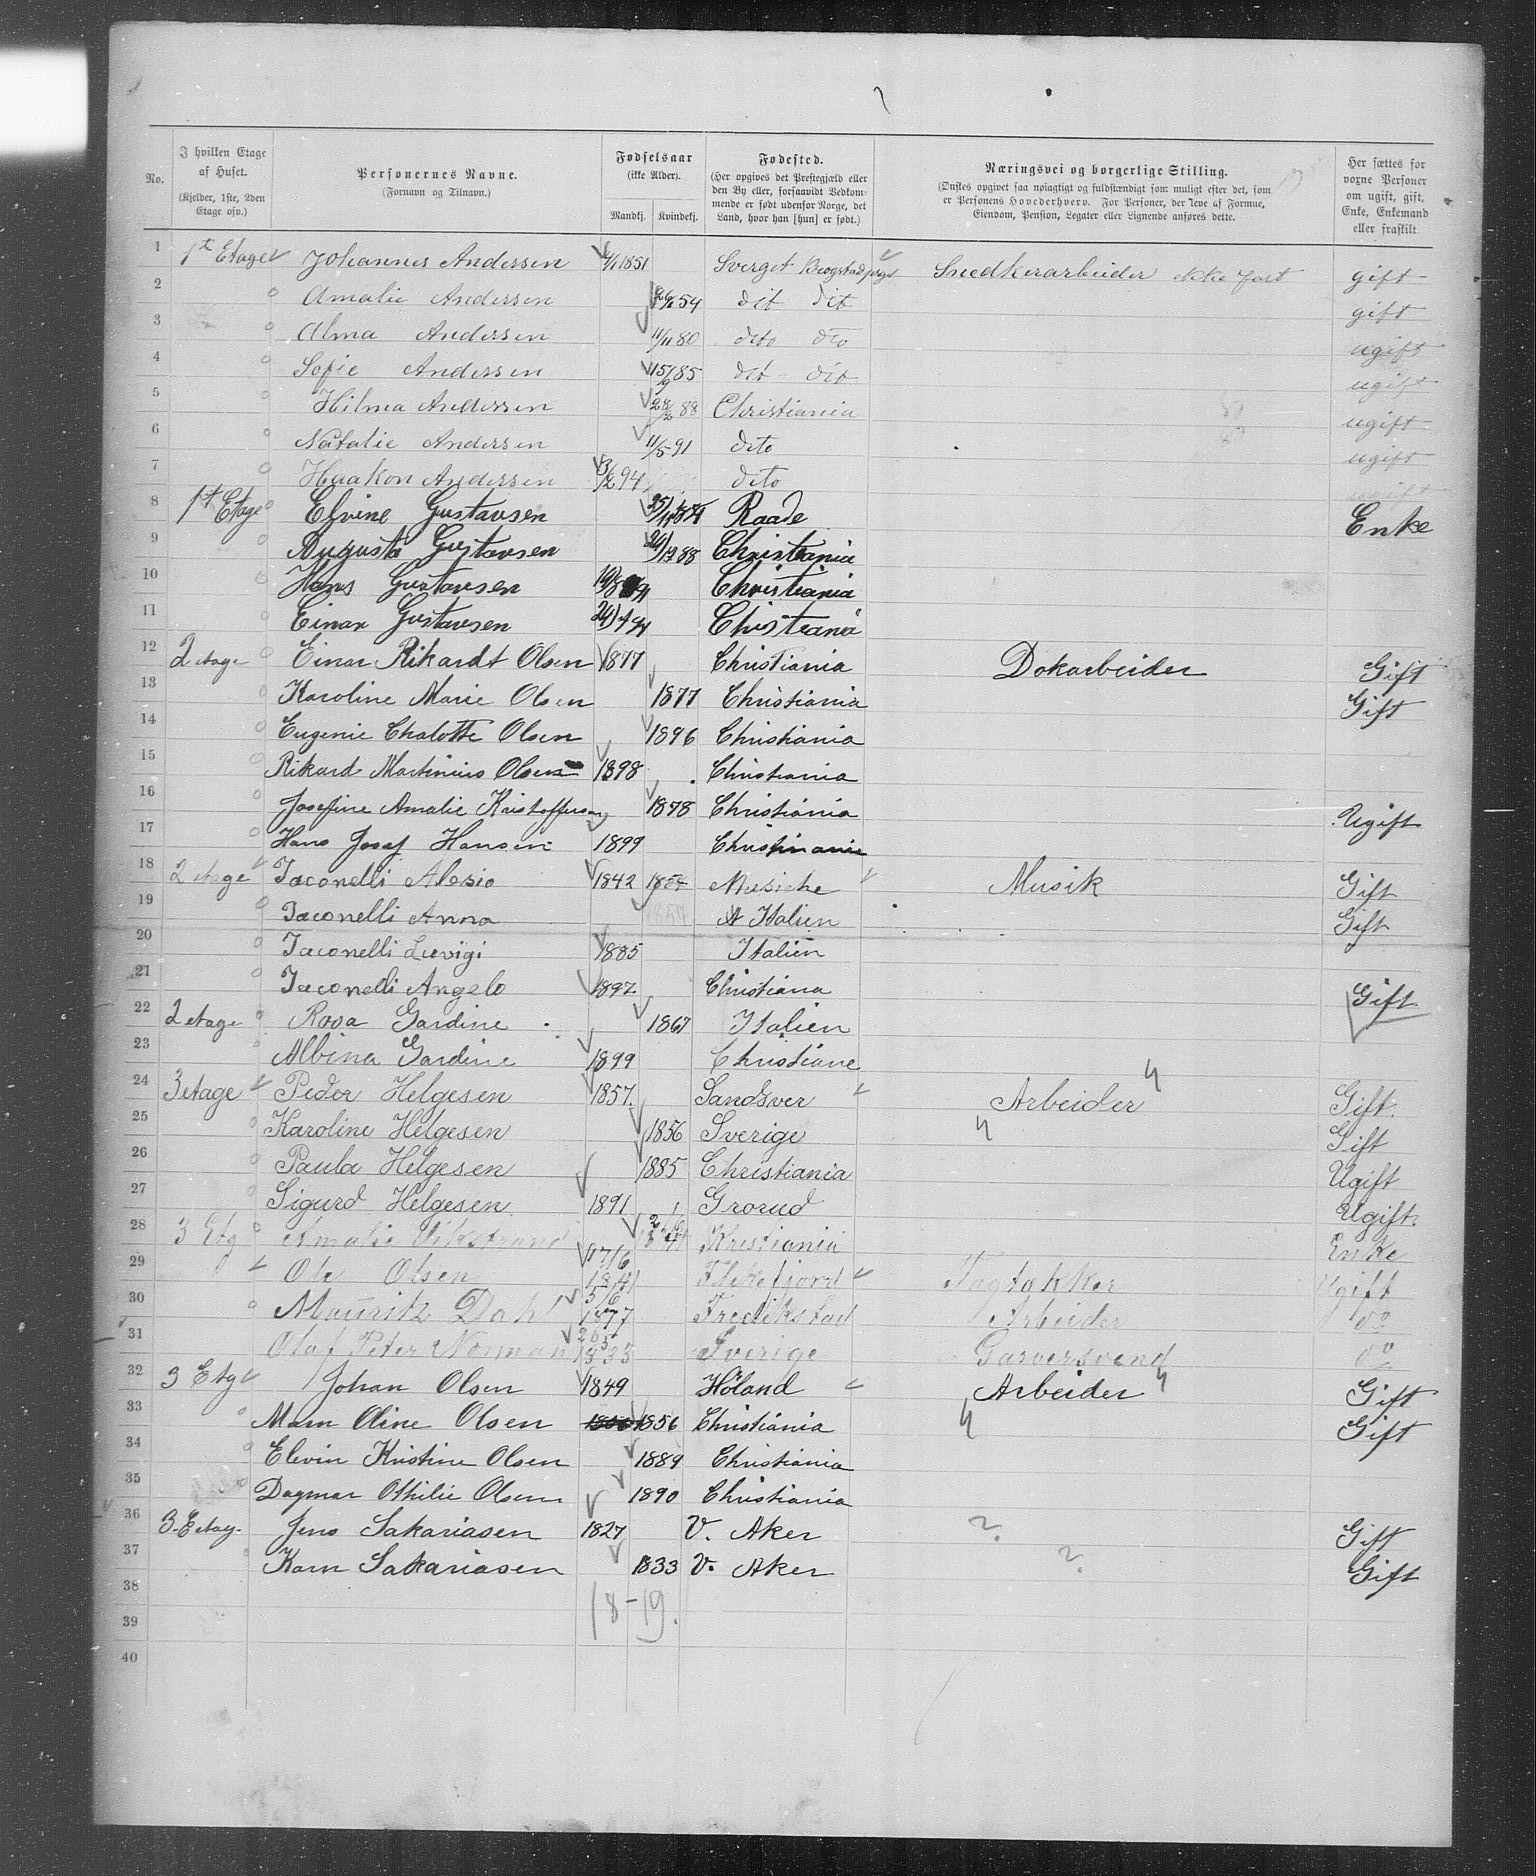 No.
I hvilken Etage af Huset. (Kjelder, 1ste, 2den Etage osv.)
Personernes Navne. (Fornavn og Tilnavn.)
Fødselsaar (ikke Alder). Mandkj. Kvindekj.
Fødested. (Her opgives det Prestegjæld eller den By eller, forsaavidt Vedkommende er født udenfor Norge, det Land, hvor han [hun] er født.)
Næringsvei og borgerlige Stilling. (Ønskes opgivet saa nøiagtigt og fuldstændigt som muligt efter det, som er Personens Hovederhverv. For Personer, der leve af Formue, Eiendom, Pension, Legater eller Lignende anføres dette.
Her sættes for voxne Personer om ugift, gift, Enke, Enkemand eller fraskilt
1 1st Etage Johannes Andersen 1851 Sverget Snedkerarbeider ikke fast gift
2 Amalie Andersen 54 dit dit gift
3 Alma Andersen 11/11 80 dito dto ugift
4 Sofie Andersen 15/9 85 dit dit ugift
5 Hilma Andersen 28/2 88 Christiania ugift
6 Natalie Andersen 11/5-91 dito ugift
7 Haakon Andersen 3/2 94 dito ugift
8 1st Etage Elvine Gustavsen Raade Enke
9 Augusta Gustavsen 88 Christiania
10 Hans Gustavsen Christiania
11 Einar Gustavsen Christiania
12 2 etage Einar Rikardt Olsen 1877 Christiania Dokarbeider Gift
13 Karoline Marie Olsen 1877 Christiania Gift
14 Eugenie Chalotte Olsen 1896 Christiania
15 Rikard Martinius Olsen 1898 Christiania
16 Josefine Amalie Kristoffersen 1878 Christiania Ugift
17 Hans Josef Hansen 1899 Christiania
18 2 etage Iaconelli Alesio 1842 Musik Gift
19 Iaconelli Anna Italien Gift
20 Iaconelli Luvigi 1885 Italien
21 Iaconelli Angelo 1897 Christiana
22 2 etage Rosa Gardine 1867 Italien Gift
23 Albina Gardine 1899 Christiane
24 3 etage Peder Helgesen 1857. Sandsver Arbeider Gift.
25 Karoline Helgesen 1856 Sverige Gift
26 Paula Helgesen 1885 Christiania Ugift
27 Sigurd Helgesen 1891 Grorud Ugift
28 3 Etg Amalie Vikstrand Kristiania Enke
29 Ole Olsen 17/6 Flekefjord Tagtækker Ugift
30 Mauritz Dahl 5/6 1877 Fredikstad Arbeider do
31 Olaf Peter Norman Sverige Garversvend do
32 3 Etg Johan Olsen 1849 Høland Arbeider Gift
33 Maren Oline Olsen 1856 Christiania Gift
34 Elevin Kristine Olsen 1889 Christiania
35 Dagmar Othilie Olsen 1890 Christiania
36 3. Etag. Jens Sakariasen 1827 V. Aker ? Gift
37 Karn Sakariasen 1833 V. Aker ? Gift
38
39 18-19.
40